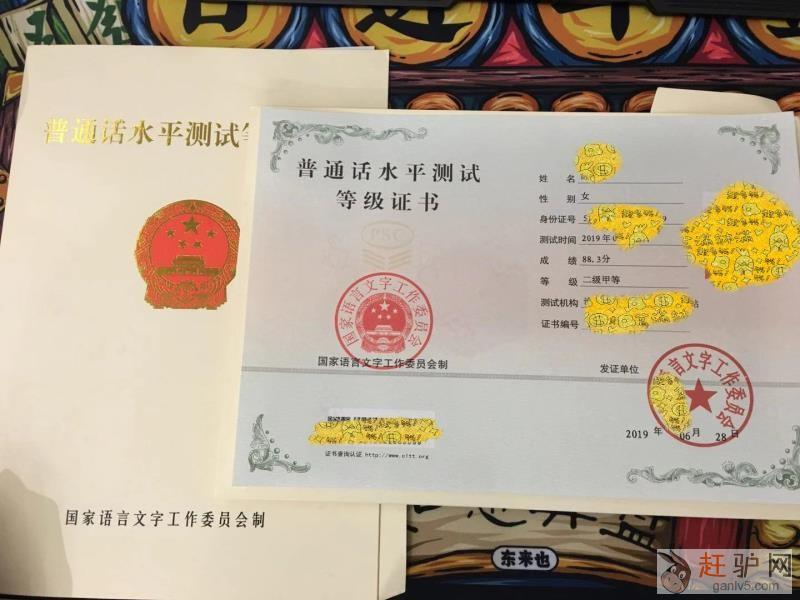 普通话水平测试等
国家语言文字工作委员会制
普通话水平测试
等级证书
PSC
国家语言文字工作委员会
国家语言文字工作委员会制
证书查询认证 http://www.cltt.org
姓 名
性 别 女
身份证号 5 9
测试时间 2019年0
成 绩 88.3分
等 级 二级甲等
测试机构 站
证书编号
发证单位
语言文字工作委员会
2019 年 06 月 28 日
东来也
赶驴网
ganlv5.com